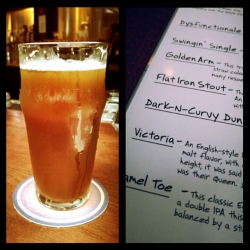 Dysfunctionale
Swingin' Single -
Golden Arm - This
straw color
many
Flat Iron Stout -
Dark-N-Curvy Dun
Victoria - An English-style
malt flavor, with
height, it was said
was their queen.
amel Toe - This classic E
a double IPA this
balanced by a st